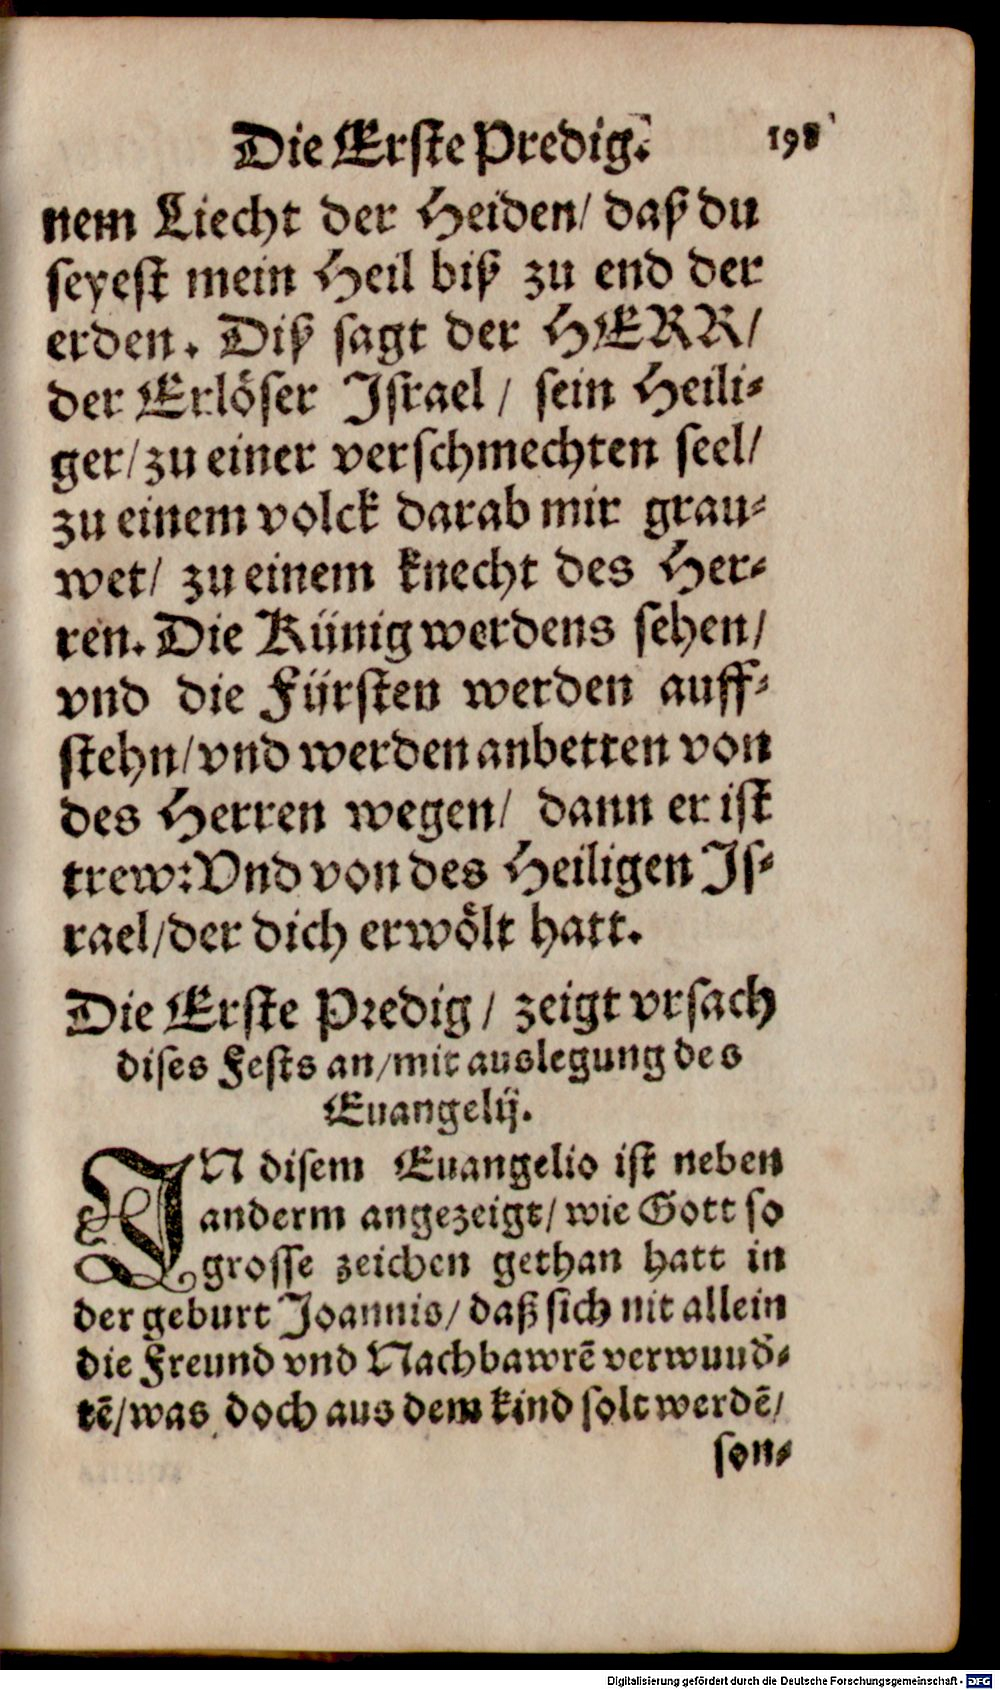 Die Erste Predig. 198
nem Liecht der Heiden/ daß du
seyest mein Heil biß zu end der
erden. Diß sagt der HERR/
der Erlöser Israel/ sein Heili-
ger/ zu einer verschmechten seel/
zu einem volck darab mir grau-
wet/ zu einem knecht des Her-
ren. Die Künig werdens sehen/
vnd die Fürsten werden auff-
stehn/ vnd werden anbetten von
des Herren wegen/ dann er ist
trew: Vnd von des Heiligen Is-
rael/ der dich erwölt hatt.
Die Erste Predig/ zeigt vrsach
dises Fests an/ mit auslegung des
Euangelij.
IN disem Euangelio ist neben
anderm angezeigt/ wie Gott so
grosse zeichen gethan hatt in
der geburt Joannis/ daß sich nit allein
die Freund vnd Nachbawrē verwund̄-
tē/ was doch aus dem kind solt werdē/
son-
Digitalisierung gefördert durch die Deutsche Forschungsgemeinschaft - DFG